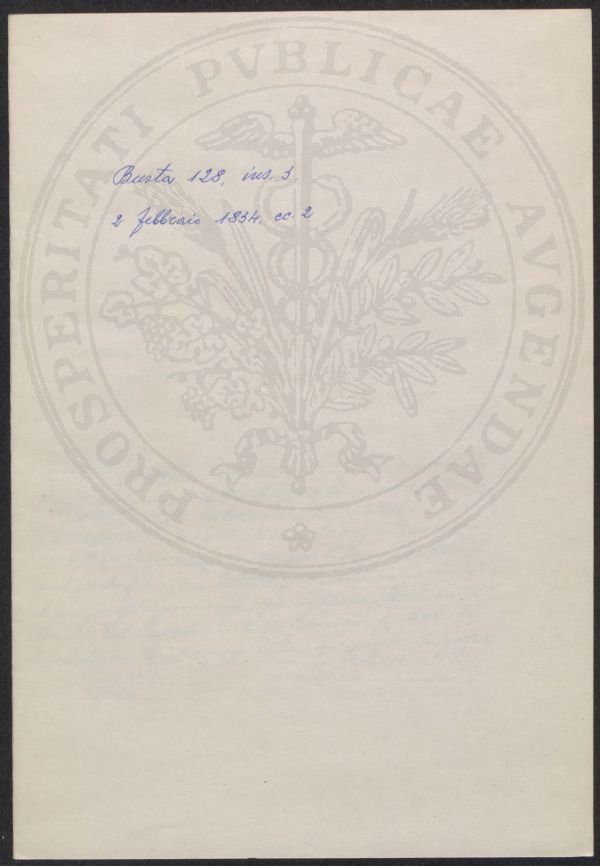 Busta 128, ins. 3.
2 febbraio 1834. cc. 2
PROSPERITATI PVBLICAE AVGENDAE